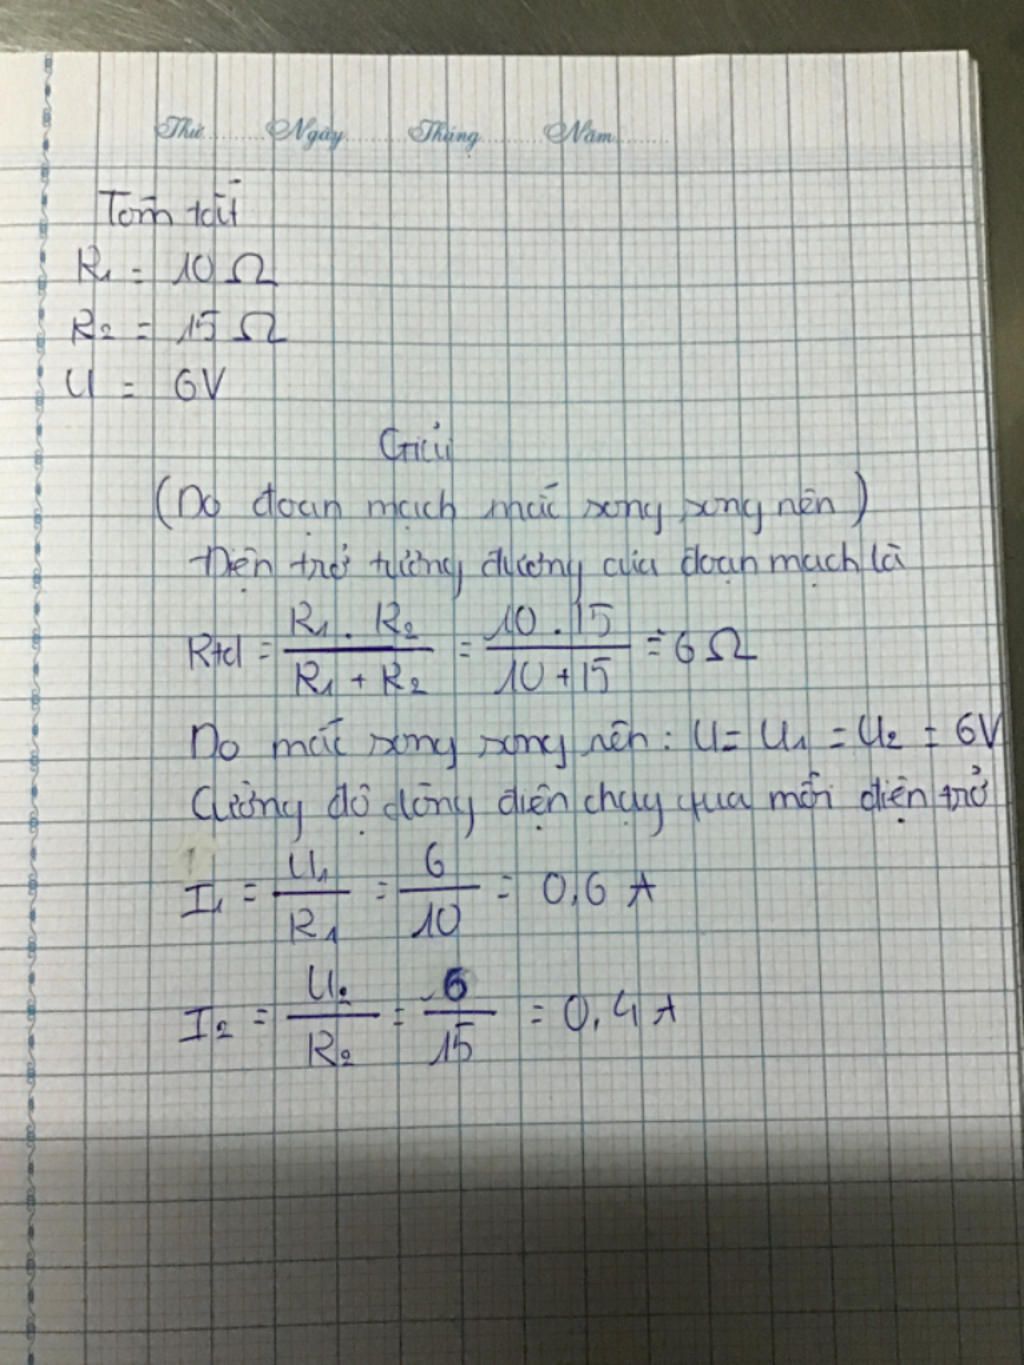 Thứ Ngày Tháng Năm
Tóm tắt
R1 = 10 Ω
R2 = 15 Ω
U = 6V
Giải
(Do đoạn mạch mắc song song nên)
Điện trở tương đương của đoạn mạch là
Rtđ = R1 . R2 / R1 + R2 = 10 . 15 / 10 + 15 = 6 Ω
Do mắc song song nên : U = U1 = U2 = 6V
Cường độ dòng điện chạy qua mỗi điện trở
I1 = U1 / R1 = 6 / 10 = 0,6 A
I2 = U2 / R2 = 6 / 15 = 0,4 A